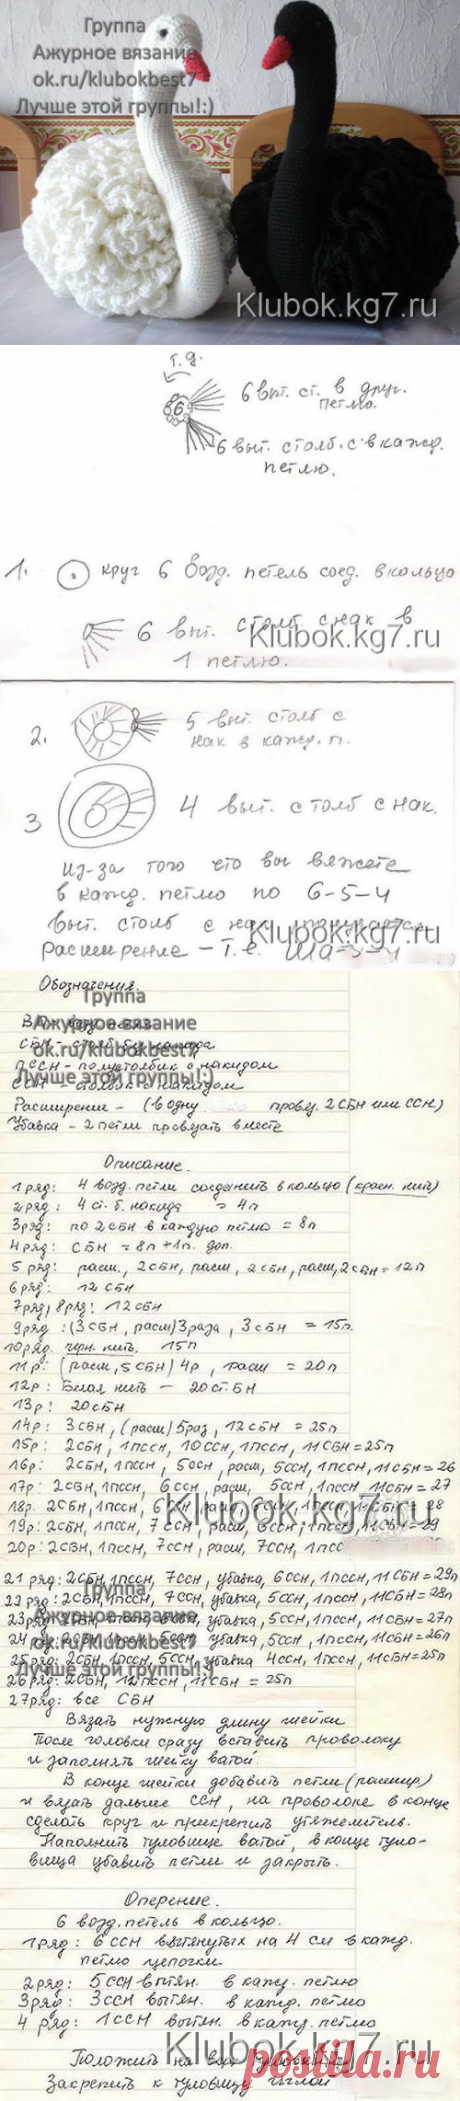 Группа
Ажурное вязание
ok.ru/klubokbest7
Лучше этой группы!:)
Klubok.kg7.ru
т.д.
6 выт. ст. в друг.
петлю.
6
6 выт. столб. с в кажд.
петлю.
1. круг 6 возд. петель соед. в кольцо
6 выт. столб с нак в
1 петлю.
Klubok.kg7.ru
2. 5 выт. столб с
нак в кажд. п.
3 4 выт. столб с нак.
Из-за того что вы вяжете
в кажд. петлю по 6-5-4
выт. столб с нак
Расширение - т.е.
Klubok.kg7.ru
Обозначения.
Группа
Ажурное вязание
ok.ru/klubokbest7
Лучше этой группы!:)
СБН - столб без накида
ПССН - полустолбик с накидом
ССН - столбик с накидом
Расширение - (в одну провяз. 2СБН или ССН)
Убавка - 2 петли провязать вместе
Описание.
1 ряд: 4 возд. петли соединить в кольцо (красн. нить)
2 ряд: 4 ст. б. накида = 4п
3 ряд: по 2 сбн в каждую петлю = 8п
4 ряд: СБН = 8п + 1п. доп.
5 ряд: расш., 2СБН, расш, 2СБН, расш, 2СБН = 12п
6 ряд: 12 СБН
7 ряд, 8 ряд: 12 СБН
9 ряд: (3 СБН, расш) 3 раза, 3 СБН = 15п.
10 ряд. черн. нить. 15п
11 р: (расш, 5 СБН) 4 р, расш = 20п
12р: Белая нить - 20 ст. БН
13р: 20 СБН
14р: 3 СБН, (расш) 5 раз, 12 СБН = 25п
15р: 2СБН, 1ПССН, 10ССН, 1ПССН, 11 СБН = 25п
16р: 2СБН, 1ПССН, 5ССН, расш, 5ССН, 1ПССН, 11СБН = 26
17р: 2СБН, 1ПССН, 6ССН, расш, 5ССН, 1ПССН, 11СБН = 27
18р. 2СБН, 1ПССН, 6ССН, расш
19р: 2СБН, 1ПССН, 7ССН, расш, 6ССН, 1ПССН, 11СБН = 29
20р: 2СБН, 1ПССН, 7ССН, расш, 7ССН,
Klubok.kg7.ru
21 ряд: 2СБН, 1ПССН, 7ССН, убавка, 6ССН, 1ПССН, 11СБН = 29п
22 ряд: 2СБН, 1ПССН, 7ССН, убавка, 5ССН, 1ПССН, 11СБН = 28п
23 ряд: убавка, 5ССН, 1ПССН, 11СБН = 27п
24 ряд: убавка, 5ССН, 1ПССН, 11СБН = 26п
25 ряд: 2СБН, 1ПССН, 5ССН, убавка 4ССН, 1ПССН, 11СБН = 25п
26 ряд: 2СБН, 12ПССН, 11СБН = 25п
27 ряд: все СБН
Группа
Ажурное вязание
ok.ru/klubokbest7
Лучше этой группы!:)
Вязать нужную длину шейки
После головки сразу вставить проволоку
и заполнять шейку ватой.
В конце шейки добавить петли (расшир)
и вязать дальше ССН, на проволоке в конце
сделать круг и прикрепить утяжелитель.
Наполнить туловище ватой, в конце туло-
вища убавить петли и закрыть.
Оперение.
6 возд. петель в кольцо.
1 ряд: 6 ССН вытянутых на 4 см в кажд.
петлю цепочки
2 ряд: 5 ССН вытян. в кажд. петлю
3 ряд: 3 ССН вытян. в кажд. петлю
4 ряд: 1 ССН вытян. в кажд. петлю
Klubok.kg7.ru
Положить на
Закрепить к туловищу иглой
postila.ru